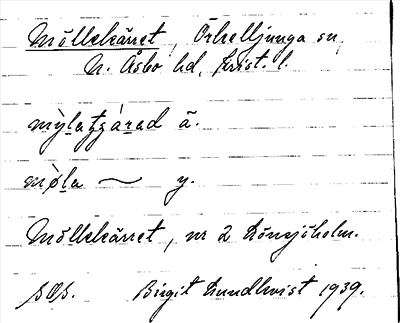 Möllekärret, Örkelljunga sn,
N. Åsbo hd, Krist. l.
mø̀la ~ y.
Möllekärret, nr 2 Lönsjöholm.
SOS. Birgit Lundkvist 1939.